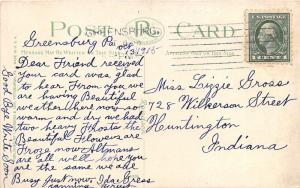 POST CARD
GREENSBURG
Greensburg Pa. Oct 15/1915
Dear Friend received
your card was glad
to hear from you we
are having Beautiful
weather here now so
warm and dry we had
two heavy frosts the
Beautiful Flowers are
Froze now Altmans
are all well hope you
are the same we are
Busy just now Ida Gress
Good Bye Write Soon
U.S. POSTAGE
1 CENT 1
Miss Lizzie Gross
728 Wilkerson Street
Huntington
Indiana